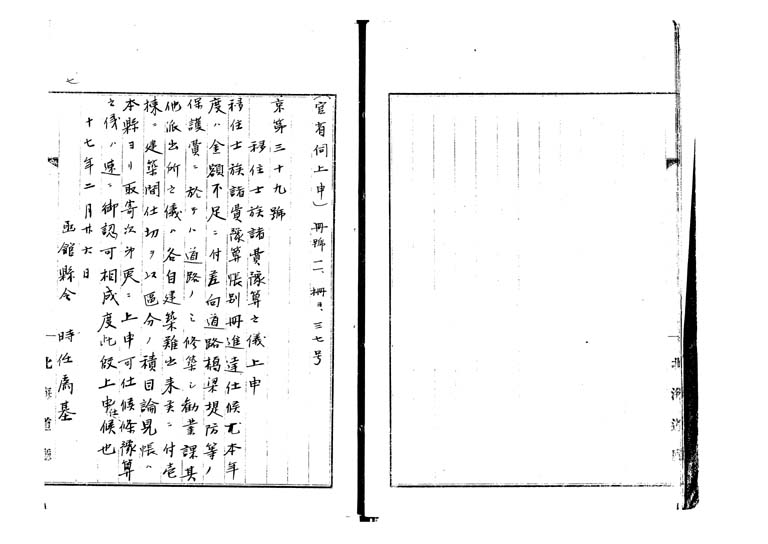 (官省伺上申) 冊號一一、冊目、三七号
京第三十九號
移住士族諸費豫算之儀上申
移住士族諸費豫算帳別冊進達仕候尤本年
度ハ金額不足ニ付差向道路橋梁堤防等ノ
保護費ニ於テハ道路ノミ修築シ勧業課其
他派出所之儀ハ各自建築難出来義ニ付壱
棟ニ建築間仕切ヲ以區分ノ積目論見帳ハ
本縣ヨリ取寄次第更ニ上申可仕候條豫算
之儀ハ速ニ御認可相成度此段上申仕候也
十七年二月廿六日
函館縣令 時任為基
七
北海道廳
北海道廳